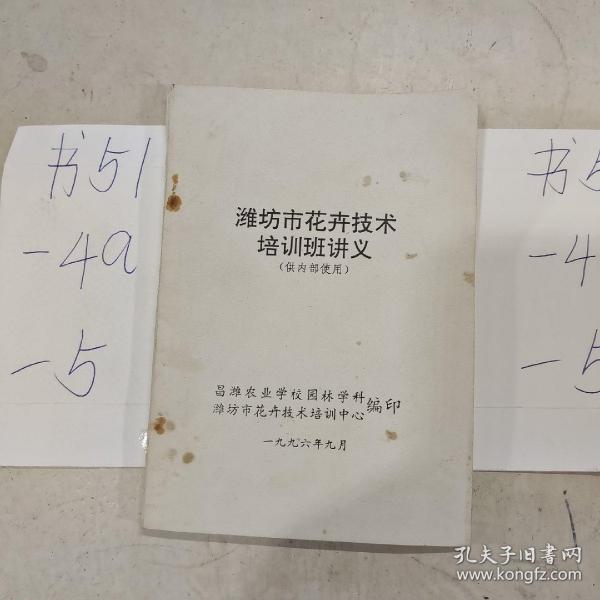 书51
-49
-5
潍坊市花卉技术
培训班讲义
(供内部使用)
昌潍农业学校园林学科
潍坊市花卉技术培训中心
编印
一九九六年九月
书5
-4
-5
孔夫子旧书网
www.kongfz.com